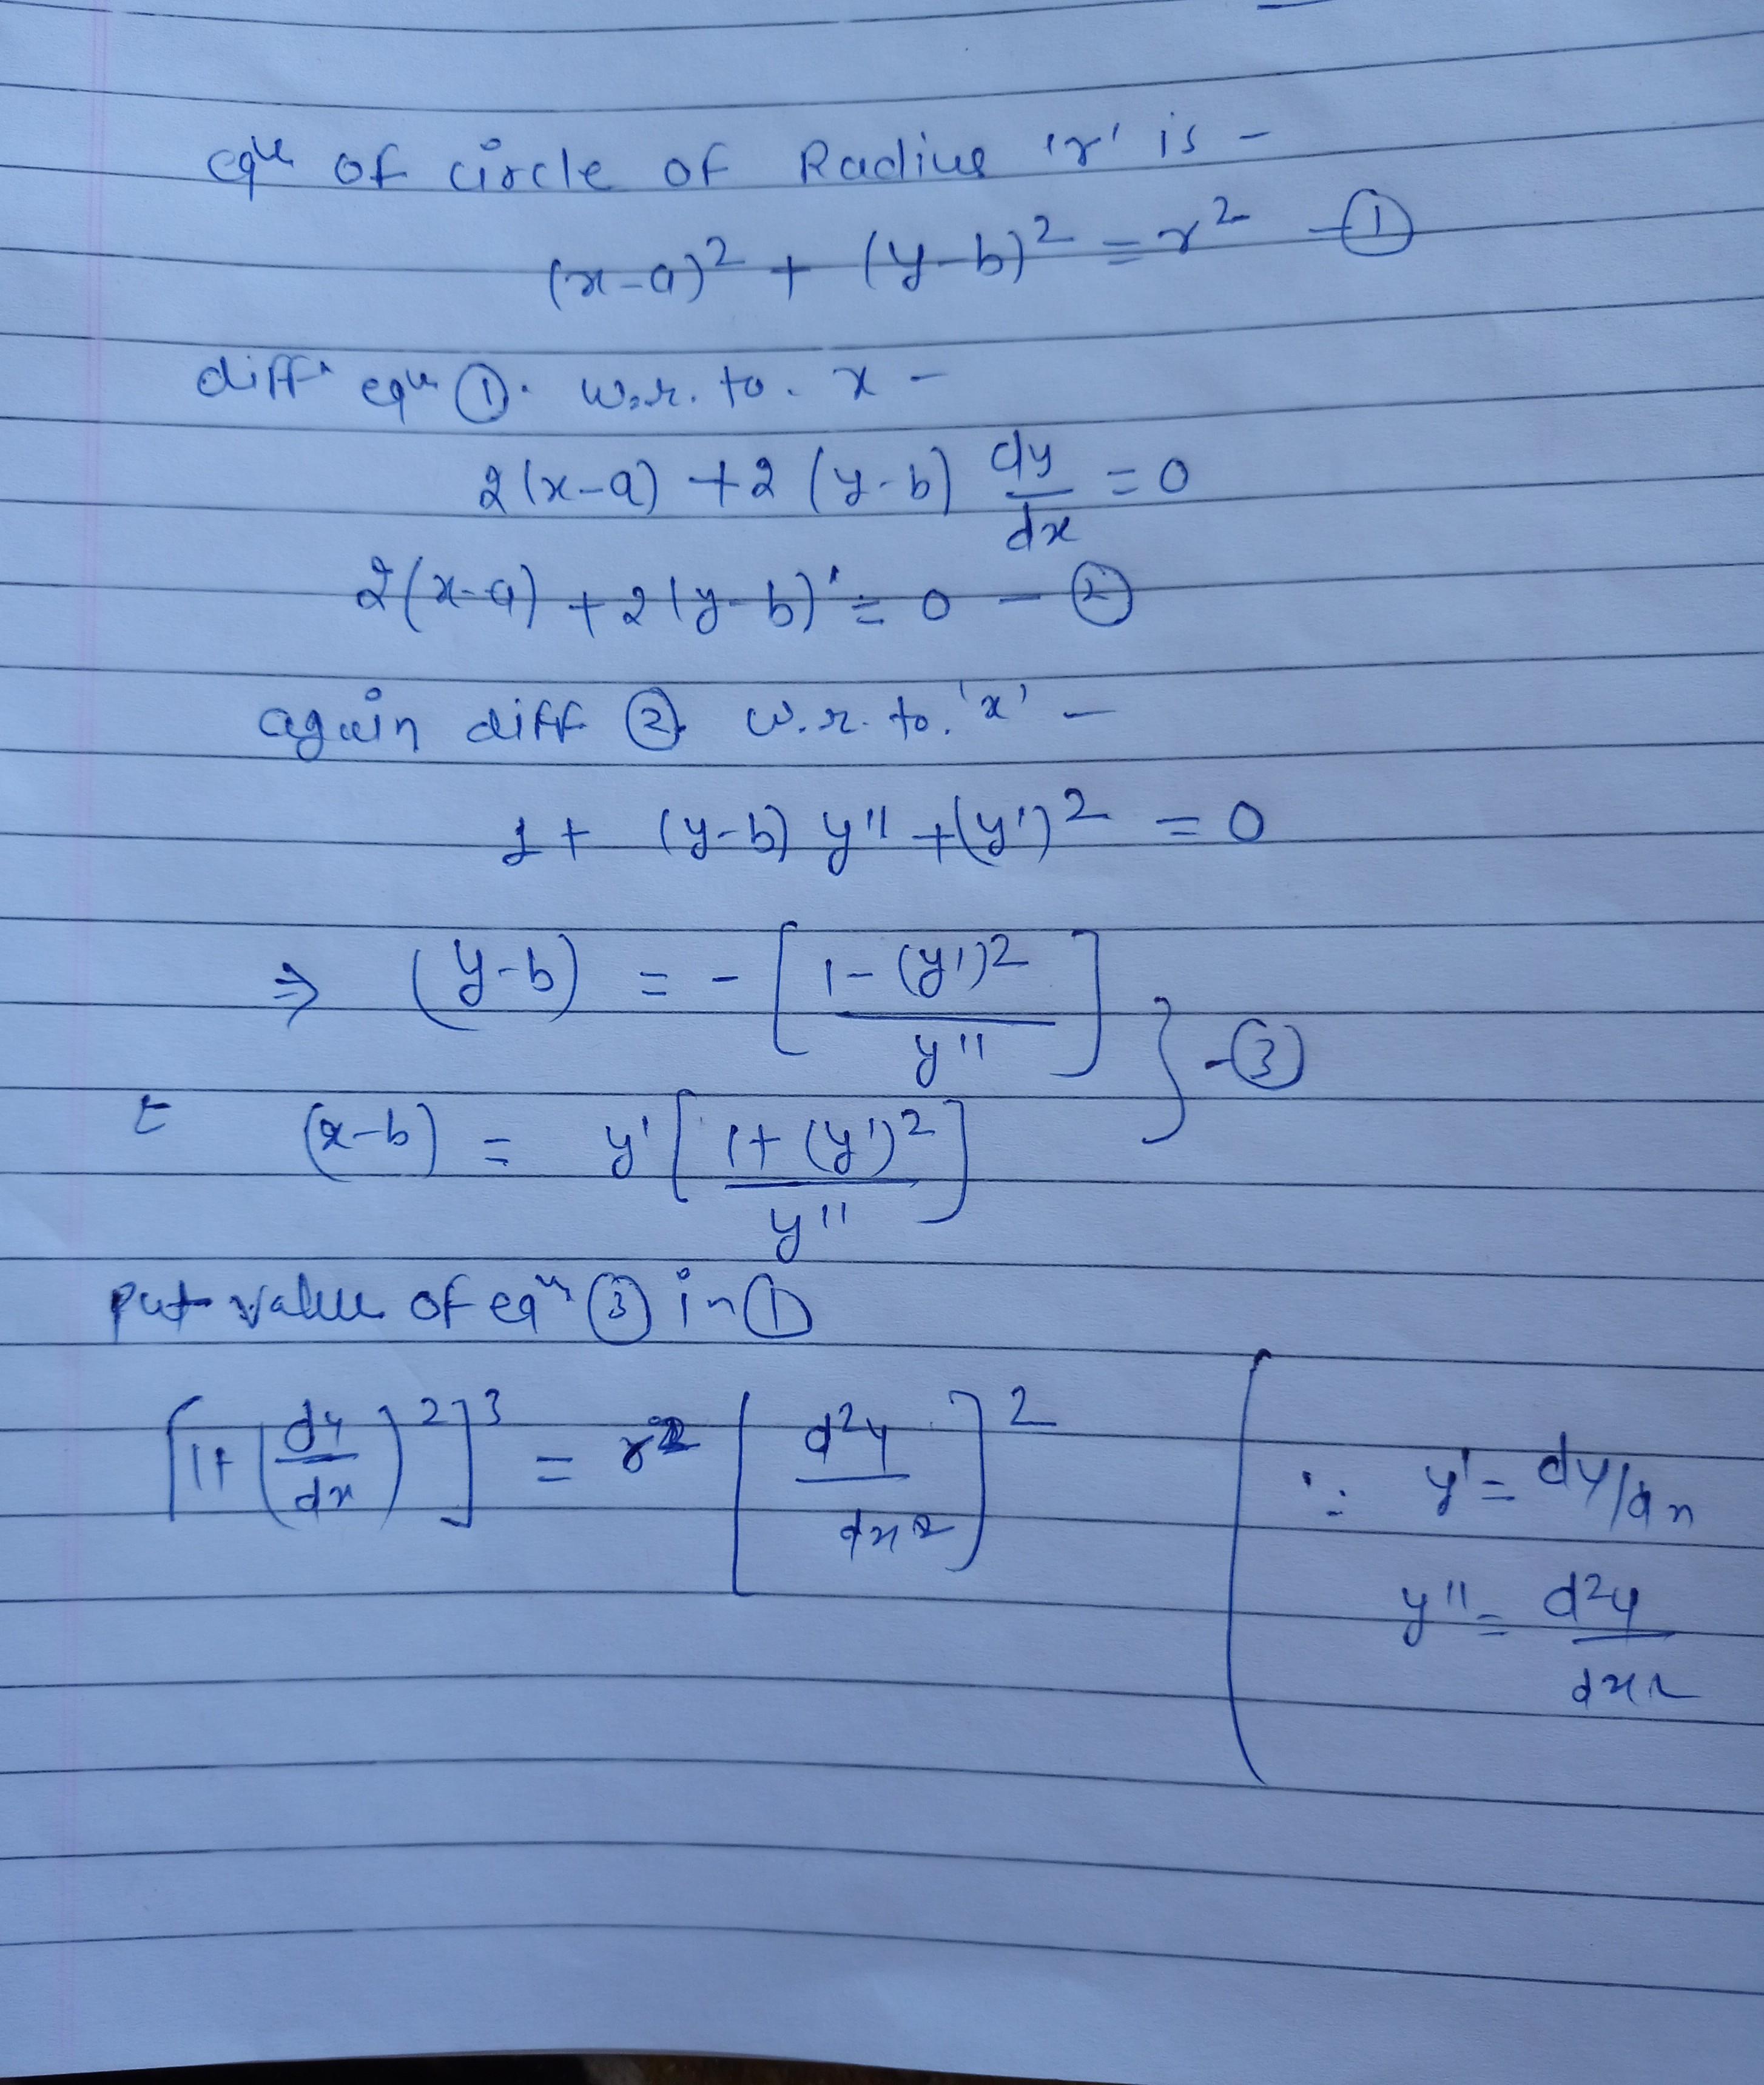 equn of circle of Radius 'r' is -
(x-a)² + (y-b)² = r² - ①
diff. equn ①. w.r. to. x -
2(x-a) + 2(y-b) dy/dx = 0
2(x-a) + 2(y-b)' = 0 - ②
again diff ② w.r. to. 'x' -
1 + (y-b) y'' + (y')² = 0
⇒ (y-b) = - [1-(y')²/y'']
(x-b) = y' [1+(y')²/y''] } - ③
put value of eqn ③ in ①
[1+(dy/dx)²]³ = r² [d²y/dx²]²
∵ y' = dy/dx
y'' = d²y/dx²